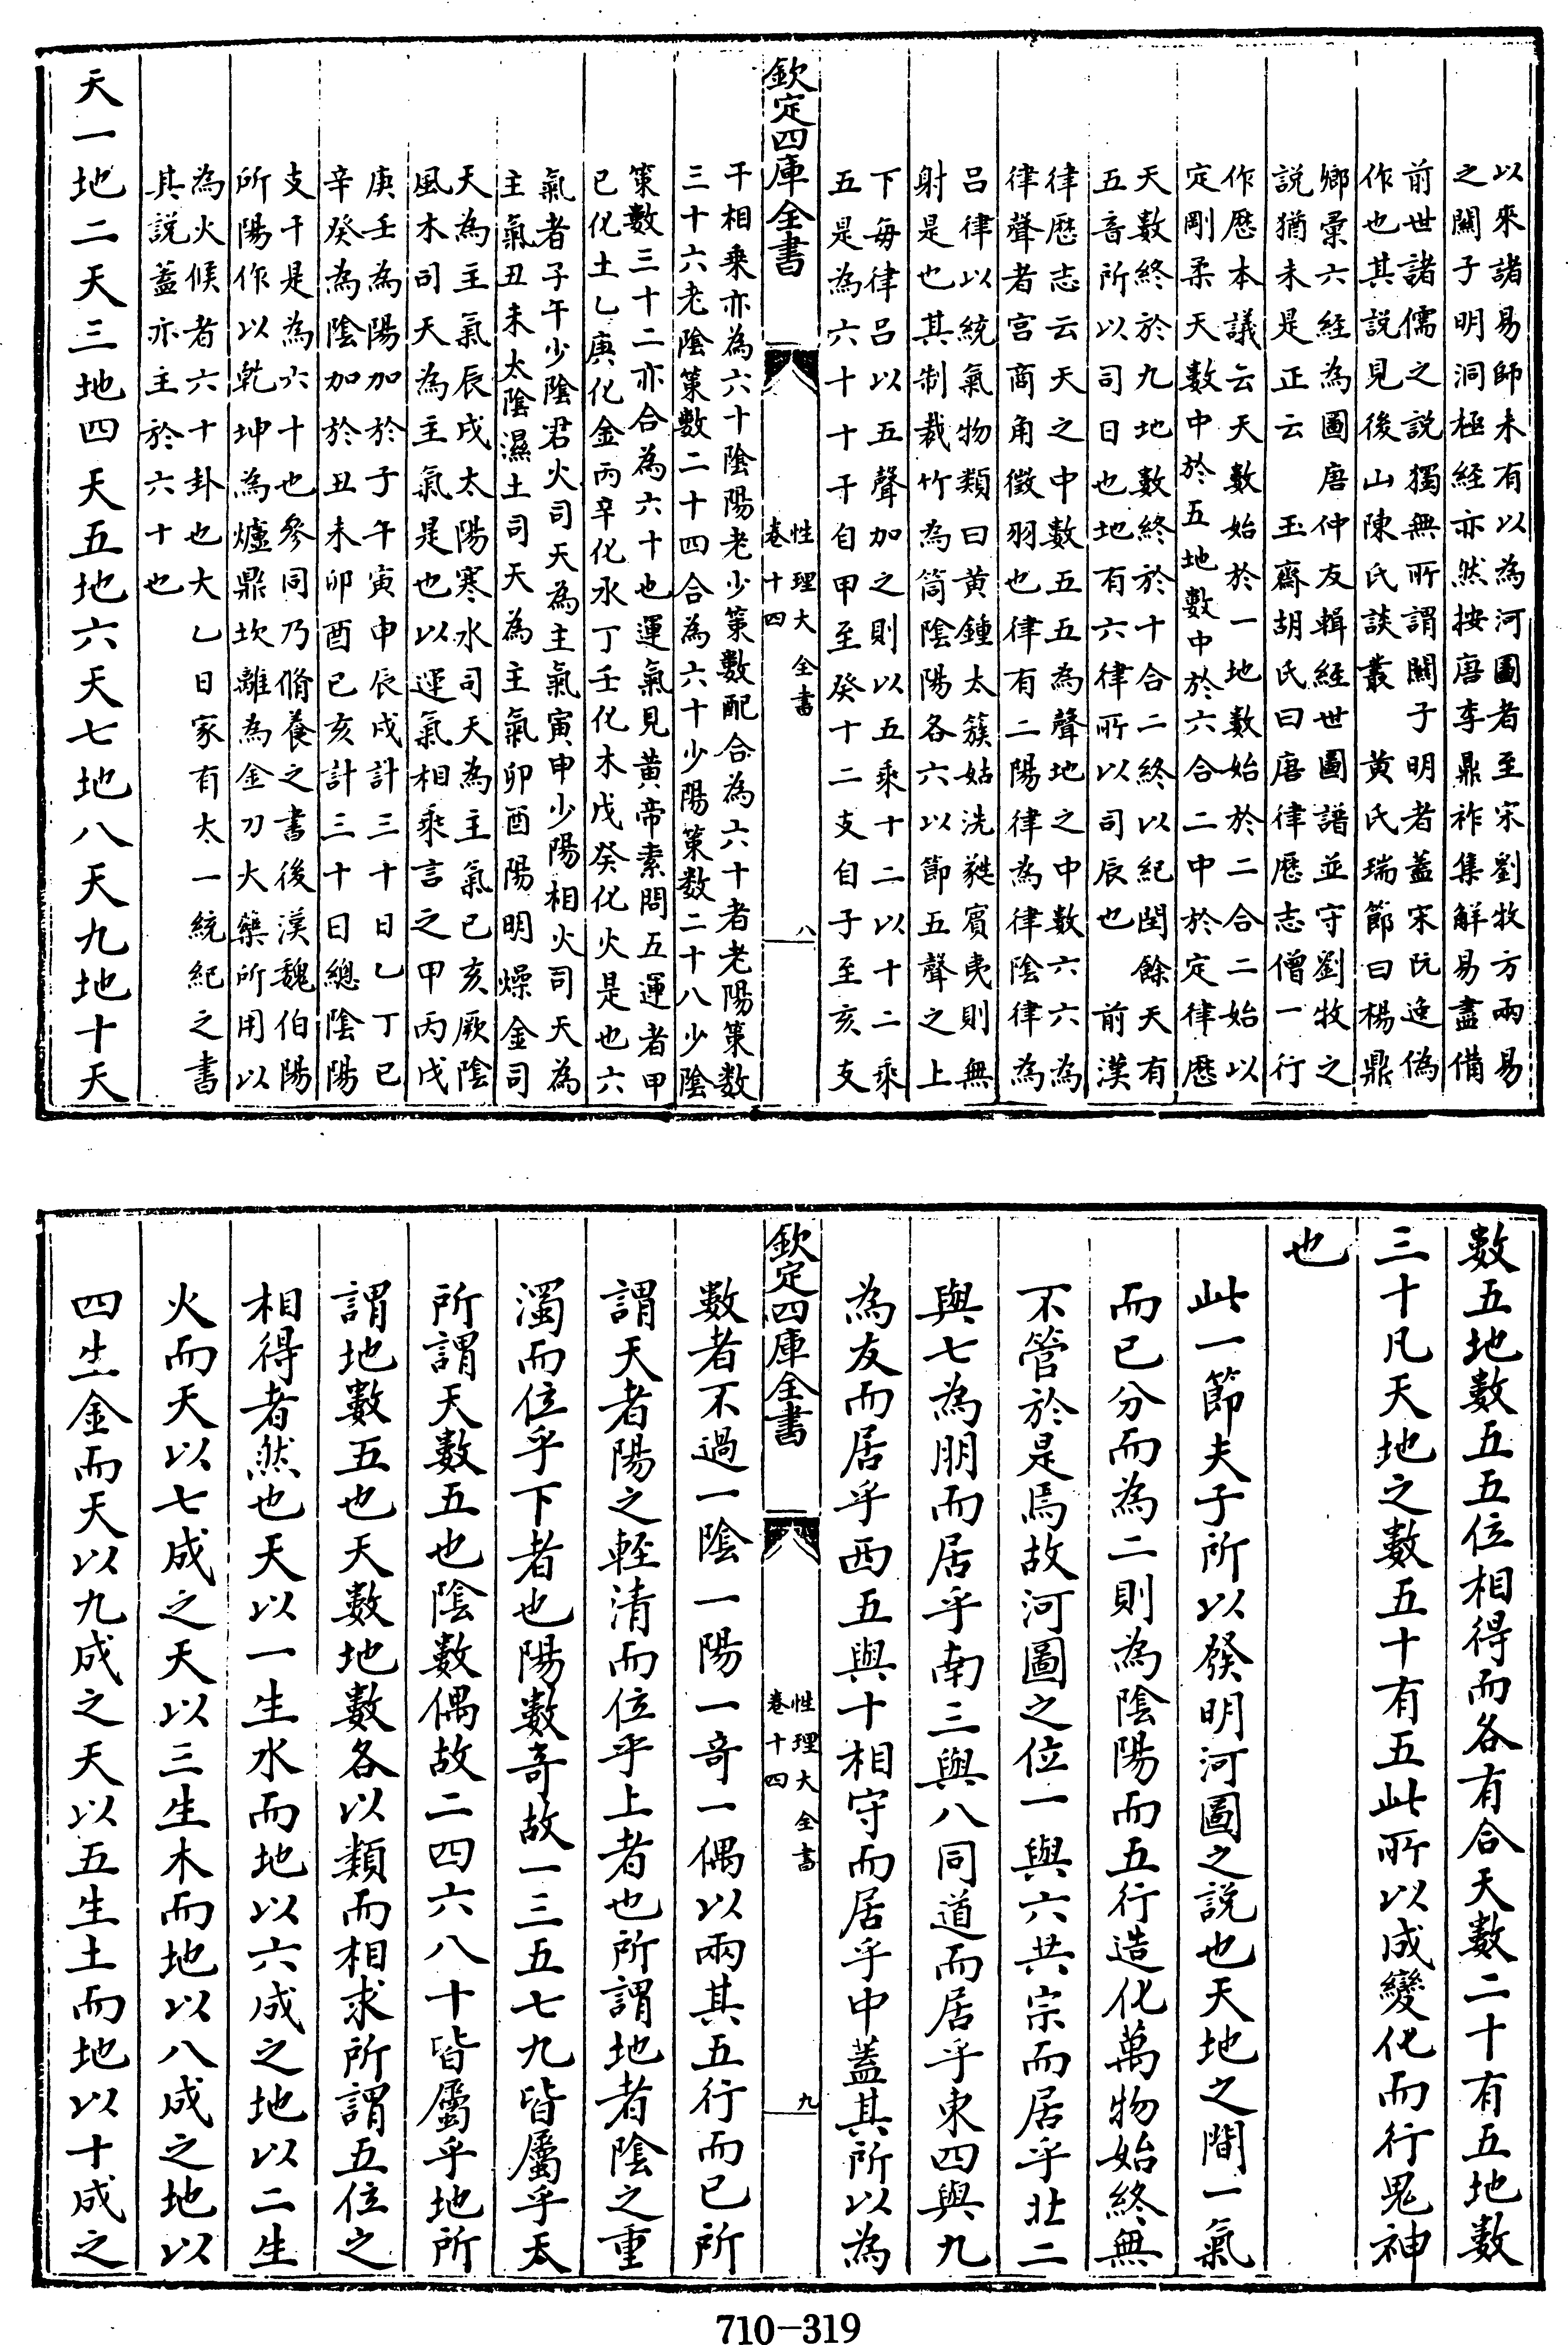 以來諸易師未有以為河圖者至宋劉牧方兩易
之關子明洞極經亦然按唐李鼎祚集解易盡備
前世諸儒之說獨無所謂關子明者蓋宋阮逸偽
作也其說見後山陳氏談叢　黃氏瑞節曰楊鼎
鄉彚六經為圖唐仲友輯經世圖譜並守劉牧之
說猶未是正云　玉齋胡氏曰唐律厯志僧一行
作厯本議云天數始於一地數始於二合二始以
定剛柔天數中於五地數中於六合二中於定律厯
天數終於九地數終於十合二終以紀閏餘天有
五音所以司日也地有六律所以司辰也　前漢
律厯志云天之中數五五為聲地之中數六六為
律聲者宫商角徵羽也律有二陽律為律陰律為
吕律以統氣物類曰黃鍾太簇姑洗蕤賓夷則無
射是也其制裁竹為筒陰陽各六以節五聲之上
下每律吕以五聲加之則以五乘十二以十二乘
五是為六十十干自甲至癸十二支自子至亥支
欽定四庫全書　性理大全書　卷十四　八
干相乘亦為六十陰陽老少策數配合為六十者老陽策數
三十六老陰策數二十四合為六十少陽策數二十八少陰
策數三十二亦合為六十也運氣見黃帝素問五運者甲
已化土乙庚化金丙辛化水丁壬化木戊癸化火是也六
氣者子午少陰君火司天為主氣寅申少陽相火司天為
主氣丑未太陰濕土司天為主氣卯酉陽明燥金司
天為主氣辰戌太陽寒水司天為主氣已亥厥陰
風木司天為主氣是也以運氣相乘言之甲丙戊
庚壬為陽加於子午寅申辰戌計三十日乙丁已
辛癸為陰加於丑未卯酉已亥計三十日總陰陽
支干是為六十也參同乃脩養之書後漢魏伯陽
所陽作以乾坤為爐鼎坎離為金刀大藥所用以
為火候者六十卦也大乙日家有太一統紀之書
其說蓋亦主於六十也
天一地二天三地四天五地六天七地八天九地十天
數五地數五五位相得而各有合天數二十有五地數
三十凡天地之數五十有五此所以成變化而行鬼神
也
此一節夫子所以發明河圖之說也天地之間一氣
而已分而為二則為陰陽而五行造化萬物始終無
不管於是焉故河圖之位一與六共宗而居乎北二
與七為朋而居乎南三與八同道而居乎東四與九
為友而居乎西五與十相守而居乎中蓋其所以為
欽定四庫全書　性理大全書　卷十四　九
數者不過一陰一陽一奇一偶以兩其五行而已所
謂天者陽之輕清而位乎上者也所謂地者陰之重
濁而位乎下者也陽數奇故一三五七九皆屬乎天
所謂天數五也陰數偶故二四六八十皆屬乎地所
謂地數五也天數地數各以類而相求所謂五位之
相得者然也天以一生水而地以六成之地以二生
火而天以七成之天以三生木而地以八成之地以
四生金而天以九成之天以五生土而地以十成之
710-319